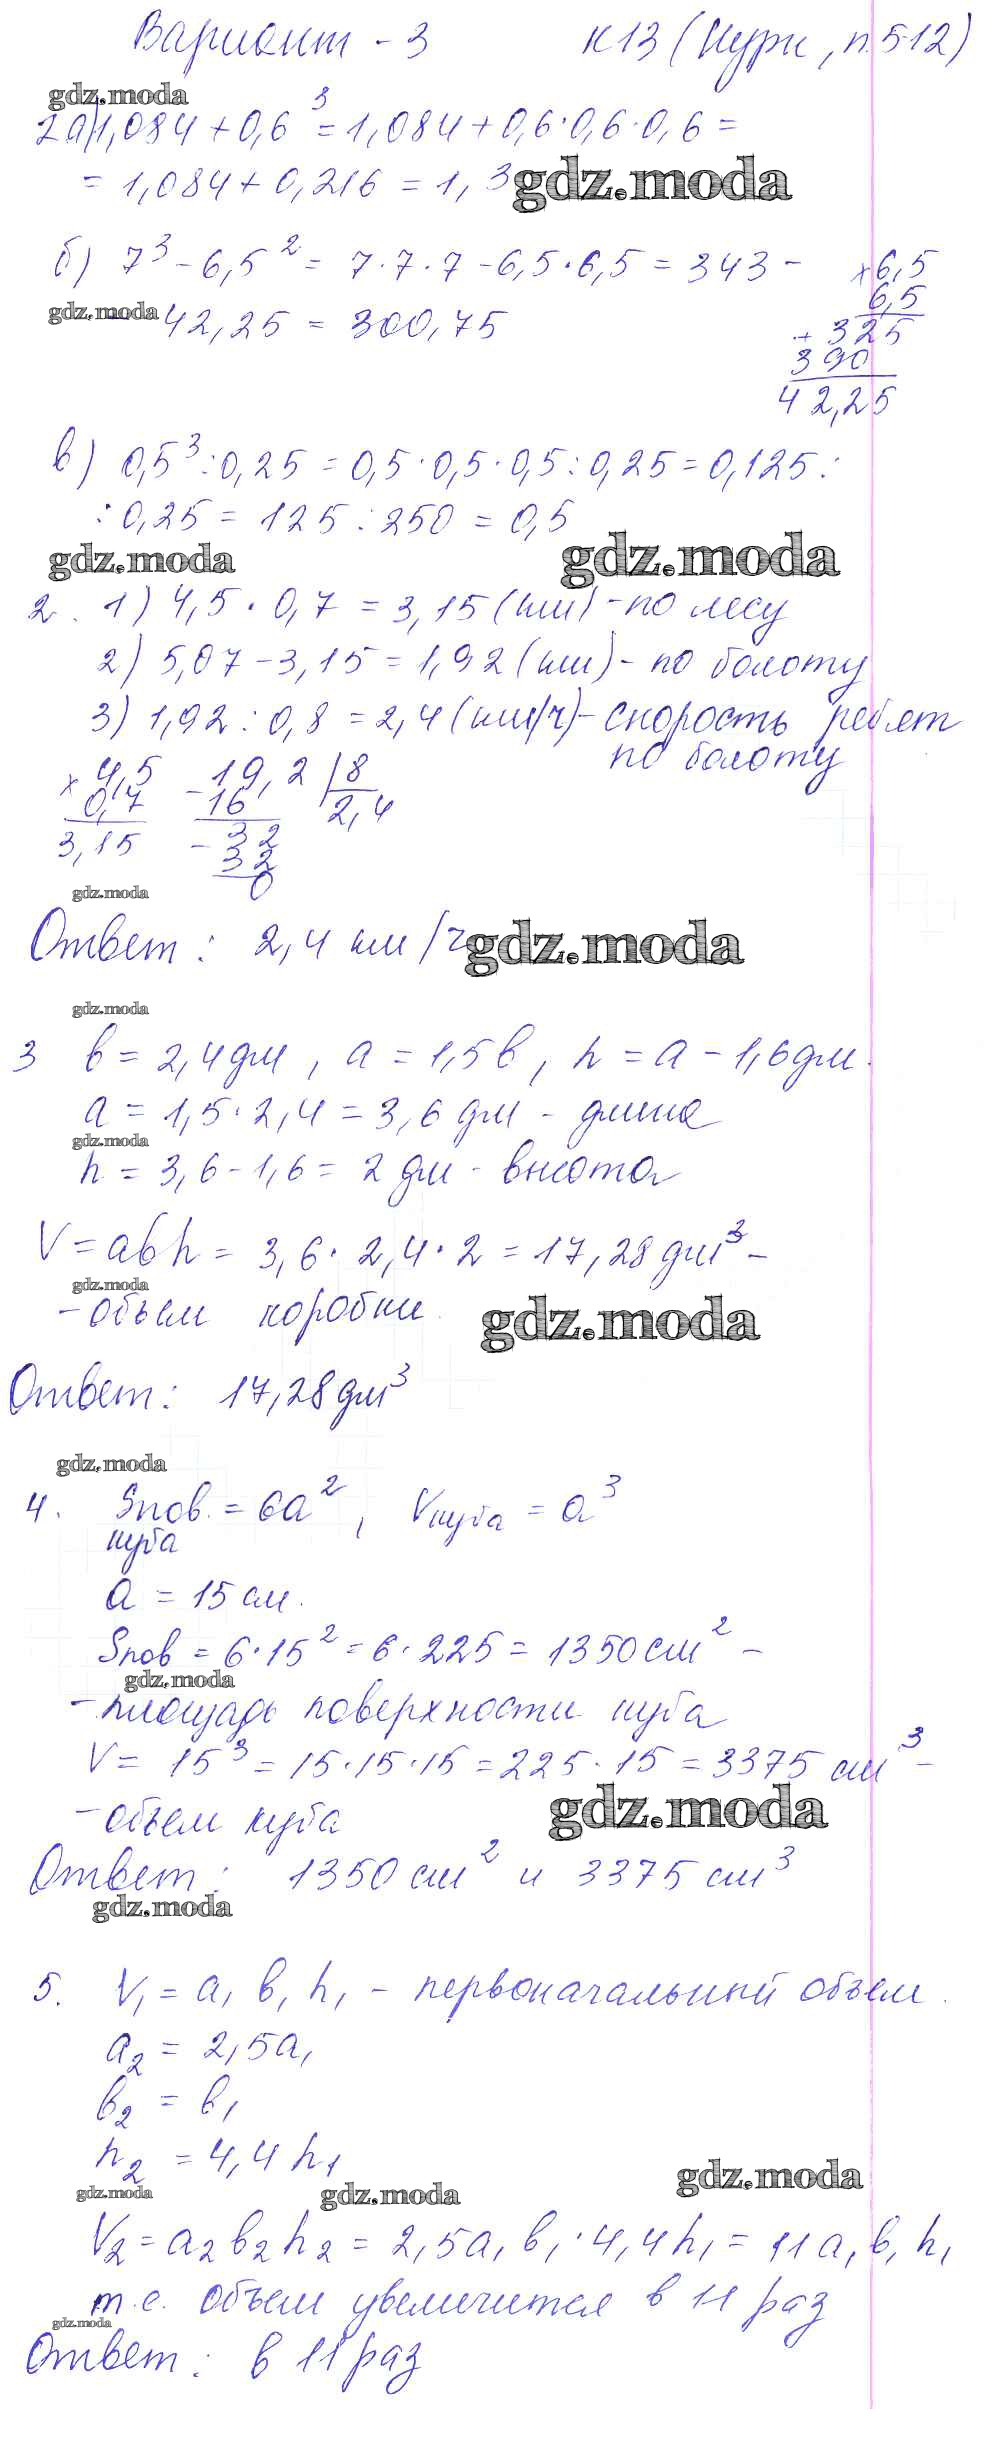 Вариант - 3 К13 (Нурк, п.5 12)
gdz.moda
2 а) 1,084 + 0,6³ = 1,084 + 0,6·0,6·0,6 =
= 1,084 + 0,216 = 1,3 gdz.moda
б) 7³ - 6,5² = 7·7·7 - 6,5·6,5 = 343 -
gdz.moda
- 42,25 = 300,75
× 6,5
6,5
+ 325
390
42,25
в) 0,5³ : 0,25 = 0,5·0,5·0,5 : 0,25 = 0,125 :
: 0,25 = 125 : 250 = 0,5
gdz.moda gdz.moda
2. 1) 4,5 · 0,7 = 3,15 (км) - по лесу
2) 5,07 - 3,15 = 1,92 (км) - по болоту
3) 1,92 : 0,8 = 2,4 (км/ч) - скорость ребят
по болоту
× 4,5 - 19,2 | 8
0,7 16 2,4
3,15 - 32
32
0
gdz.moda
Ответ: 2,4 км/ч gdz.moda
gdz.moda
3 в = 2,4 дм, а = 1,5 в, h = а - 1,6 дм.
а = 1,5·2,4 = 3,6 дм - длина
gdz.moda
h = 3,6 - 1,6 = 2 дм - высота
V = abh = 3,6 · 2,4 · 2 = 17,28 дм³ -
gdz.moda
- объем коробки. gdz.moda
Ответ: 17,28 дм³
gdz.moda
4. Sпов. = 6а², Vкуба = а³
куба
а = 15 см.
Sпов = 6·15² = 6·225 = 1350 см² -
gdz.moda
- площадь поверхности куба
V = 15³ = 15·15·15 = 225·15 = 3375 см³ -
- объем куба gdz.moda
Ответ: 1350 см² и 3375 см³
gdz.moda
5. V₁ = а₁ в₁ h₁ - первоначальный объем.
а₂ = 2,5а₁
в₂ = в₁
h₂ = 4,4 h₁
gdz.moda gdz.moda gdz.moda
V₂ = а₂ в₂ h₂ = 2,5а₁ в₁ · 4,4 h₁ = 11 а₁ в₁ h₁
т.е. объем увеличится в 11 раз
gdz.moda
Ответ: в 11 раз